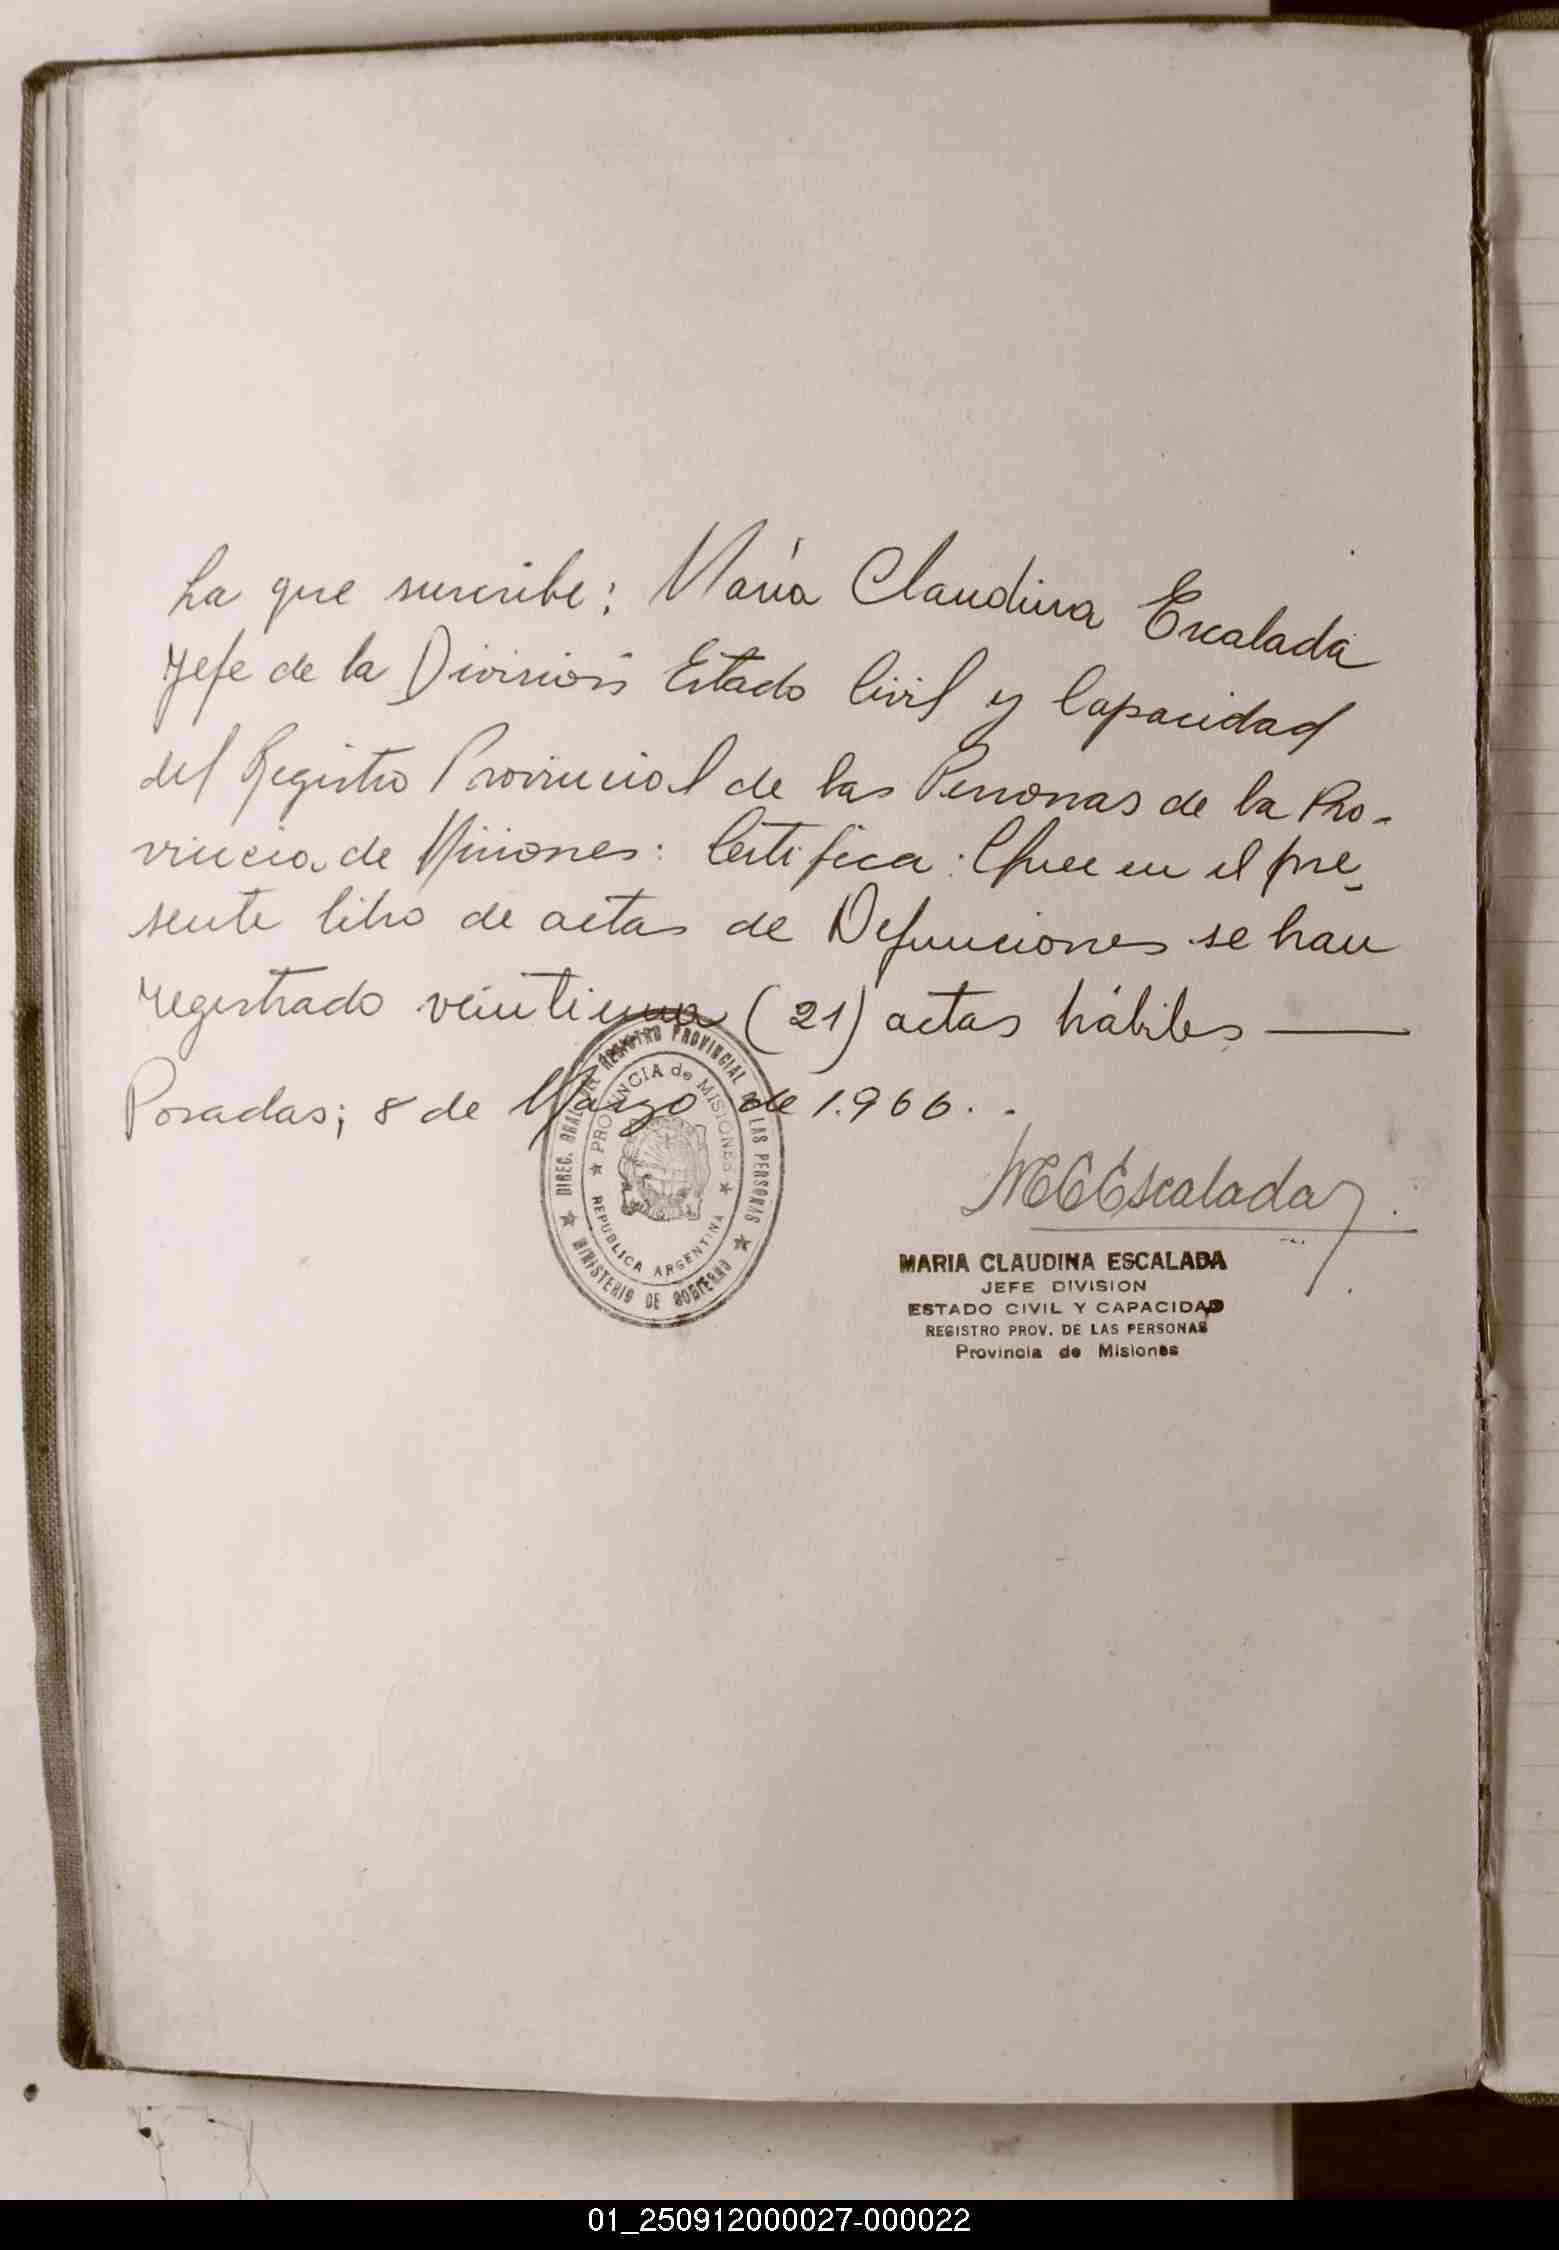 La que suscribe: María Claudina Escalada
Jefe de la División Estado Civil y Capacidad
del Registro Provincial de las Personas de la Pro-
vincia de Misiones: Certifica: Que en el pre-
sente libro de actas de Defunciones se han
registrado veintiuna (21) actas hábiles —
Posadas; 8 de Marzo de 1.966..
DIREC. GRAL. REGISTRO PROVINCIAL DE LAS PERSONAS
★ MINISTERIO DE GOBIERNO ★
★ PROVINCIA de MISIONES ★
REPUBLICA ARGENTINA
MCEscalada
MARIA CLAUDINA ESCALADA
JEFE DIVISION
ESTADO CIVIL Y CAPACIDAD
REGISTRO PROV. DE LAS PERSONAS
Provincia de Misiones
01_250912000027-000022